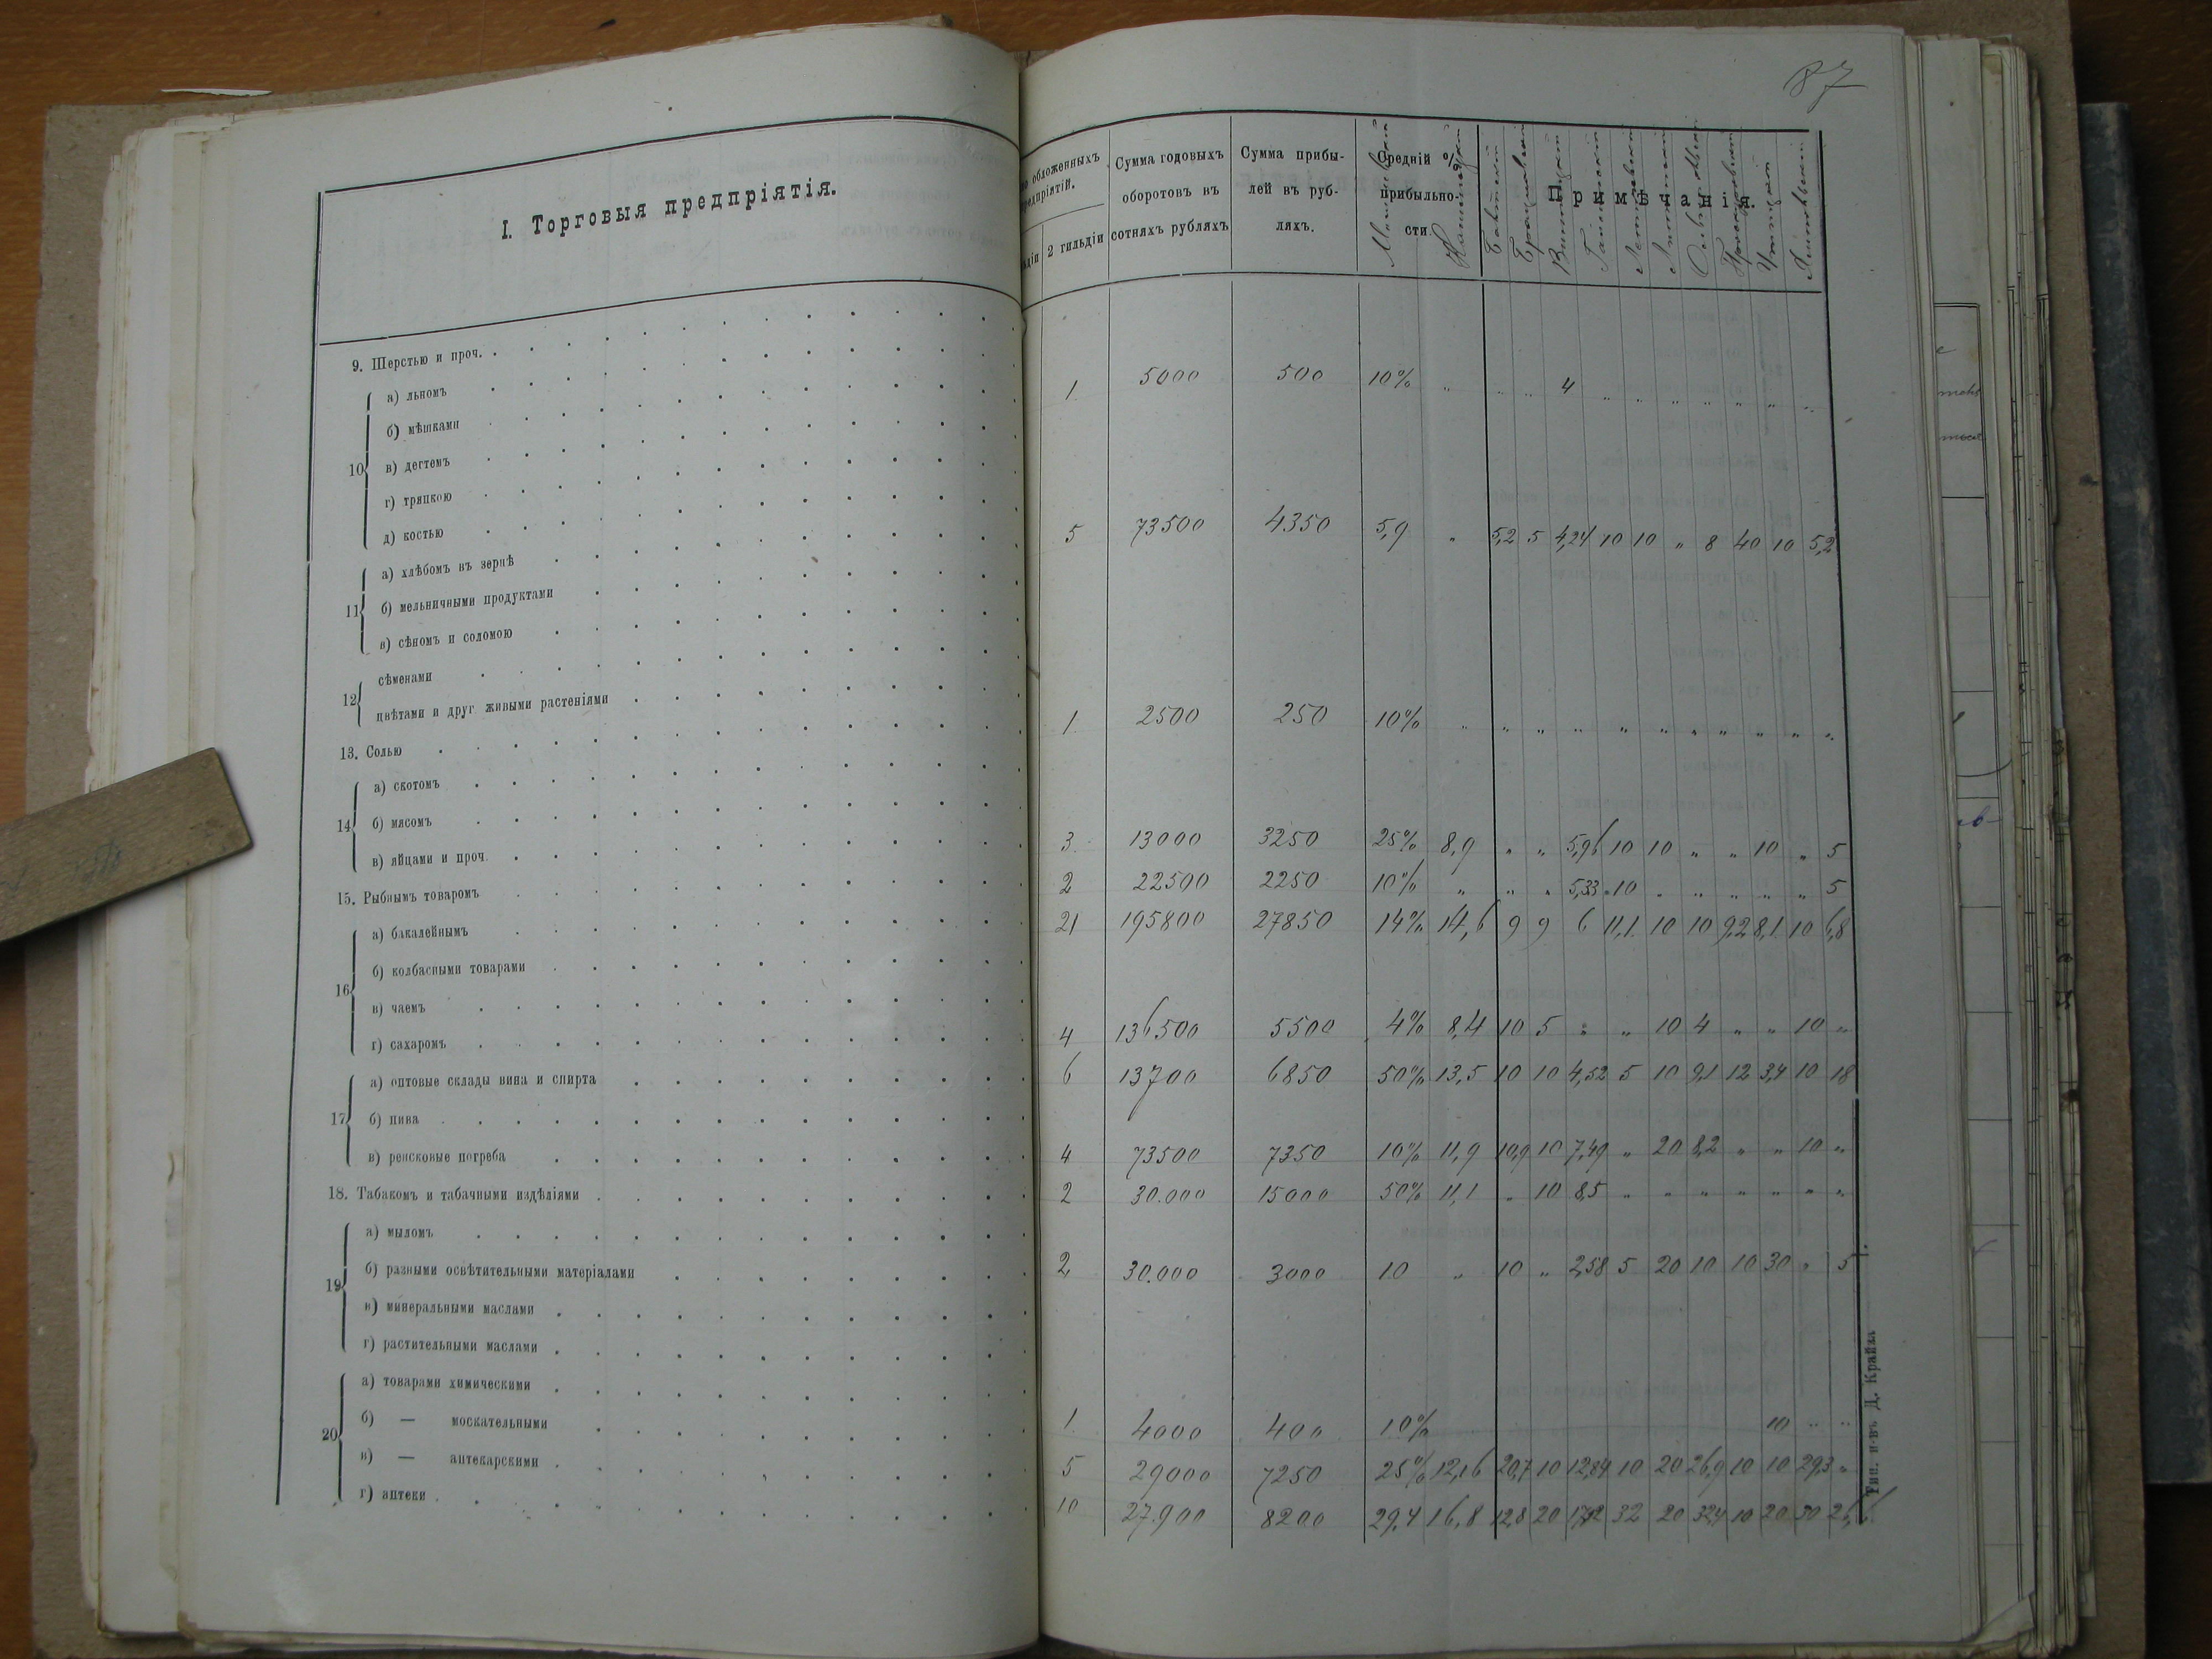 87
I. Торговыя предпріятія.
9. Шерстью и проч.
10
а) льномъ
б) мѣшками
в) дегтемъ
г) тряпкою
д) костью
11
а) хлѣбомъ въ зернѣ
б) мельничными продуктами
в) сѣномъ и соломою
12
сѣменами
цвѣтами и друг. живыми растеніями
13. Солью
14
а) скотомъ
б) мясомъ
в) яйцами и проч.
15. Рыбнымъ товаромъ
16
а) бакалейнымъ
б) колбасными товарами
в) чаемъ
г) сахаромъ
17
а) оптовые склады вина и спирта
б) пива
в) ренсковые погреба
18. Табакомъ и табачными издѣліями
19
а) мыломъ
б) разными освѣтительными матеріалами
в) минеральными маслами
г) растительными маслами
20
а) товарами химическими
б) — москательными
в) — аптекарскими
г) аптеки
обложенныхъ
2 гильдіи
Сумма годовыхъ
оборотовъ въ
сотняхъ рубляхъ
Сумма прибы-
лей въ руб-
ляхъ.
Средній %
прибыльно-
сти.
Примѣчанія.
1 5000 500 10% „ „ „ 4 „ „ „ „ „ „ „
5 73500 4350 5,9 „ 5,2 5 4,24 10 10 „ 8 40 10 5,2
1 2500 250 10% „ „ „ „ „ „ „ „ „ „ „
3 13000 3250 25% 8,9 „ „ 5,96 10 10 „ „ 10 „ 5
2 22500 2250 10% „ „ „ 5,33 „ 10 „ „ „ „ „ 5
21 195800 27850 14% 14,6 9 9 6 11,1 10 10 9,2 8,1 10 6,8
4 136500 5500 4% 8,4 10 5 „ „ 10 4 „ „ 10 „
6 13700 6850 50% 13,5 10 10 4,52 5 10 9,1 12 3,4 10 18
4 73500 7350 10% 11,9 10,9 10 7,49 „ 20 8,2 „ „ 10 „
2 30.000 15000 50% 11,1 „ 10 8,5 „ „ „ „ „ „ „
2 30.000 3000 10 „ 10 „ 2,58 5 20 10 10 30 „ 5
1 4000 400 10% 10 „ „
5 29000 7250 25% 12,16 20,7 10 12,84 10 20 26,9 10 10 29,3 „
10 27.900 8200 29,4 16,8 12,8 20 32 20 32,4 10 20 30
Тип. н-въ Д. Крайза